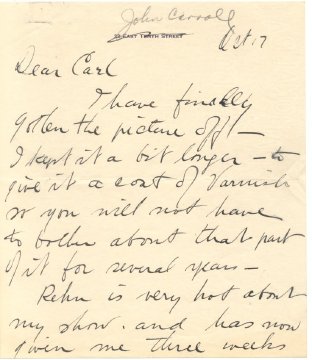 John Carroll
EAST TENTH STREET
Oct 17
Dear Carl
I have finally
gotten the picture off—
I kept it a bit longer—to
give it a coat of Varnish
so you will not have
to bother about that part
of it for several years—
Rehn is very hot about
my show. and has now
given me three weeks